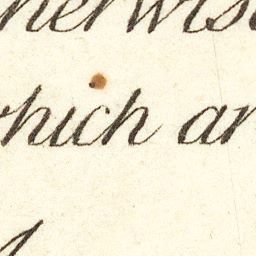 herwis
which an